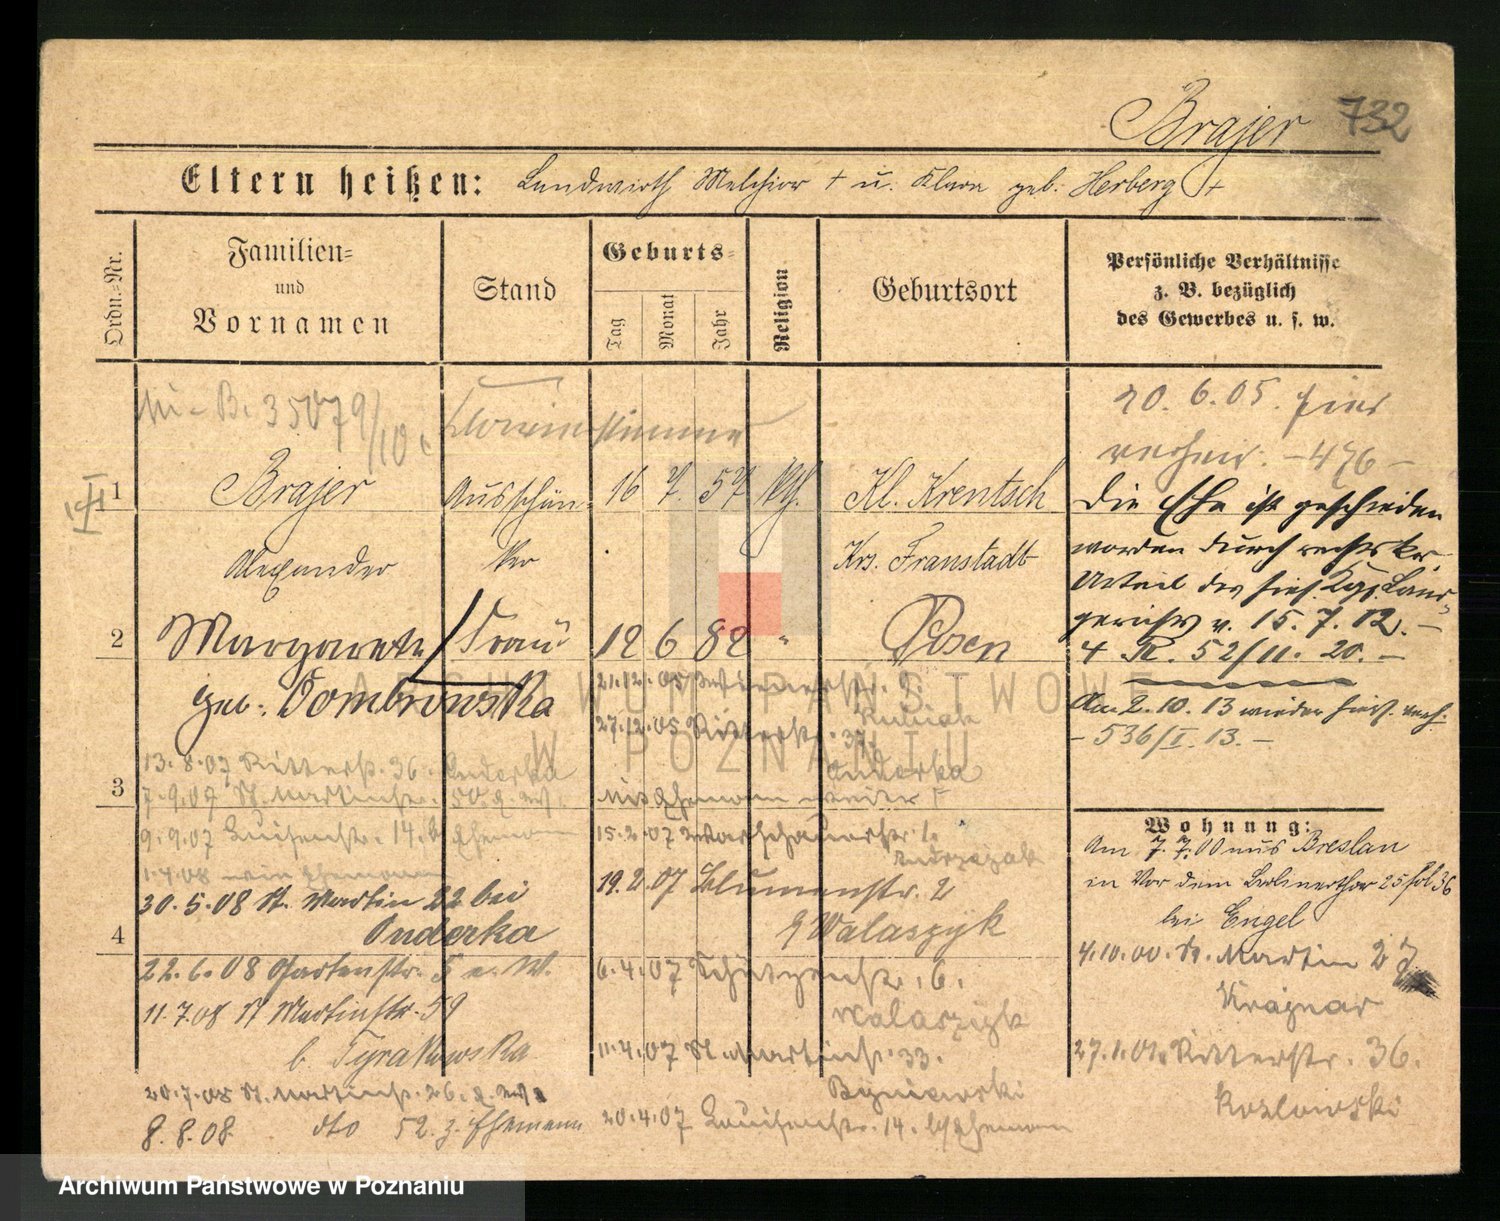 Brajer 732
Eltern heißen: Landwirth Melchior † u. Klara geb. Herberg †
Ordn.-Nr.
Familien-
und
Vornamen
Stand
Geburts-
Tag
Monat
Jahr
Religion
Geburtsort
Persönliche Verhältnisse
z. B. bezüglich
des Gewerbes u. s. w.
20. 6. 05. hier
verheir. - 476 -
1 Brajer Ausschän- 16 7. 57 kth. Kl. Krentsch
Alexander ker Krs. Fraustadt
Die Ehe ist geschieden
worden durch rechtskr.
Urteil des hies. Kgl. Land-
gerichts v. 15. 7. 12. -
4 R. 52/11. 20. -
2 Margarete Frau 12 6 82 " Posen
geb. Dombrowska
Am 2. 10. 13 wieder hier verh.
- 536/I. 13. -
21.12.05
27.12.05 Ritterstr. 37.
13. 8. 07 Ritterstr. 36. Onderka
3 7. 9. 07 St. Martinstr. 50.
9. 9. 07 Louisenstr. 14. b Ehemann
15. 2. 07 1.
Andrzejak
19. 2. 07 Blumenstr. 2
Walaszyk
30. 5. 08 St. Martin 22 bei
Onderka
4
22. 6. 08 Gartenstr. 5
11. 7. 08 St Martinstr. 59
b. Tyrakowska
20. 7. 08 St. Martinstr. 26.
8. 8. 08. dto 52. z. Ehemann
6. 4. 07 Schützenstr. 6.
Walaszyk
11. 4. 07 St. Martinstr. 33.
20. 4. 07 Louisenstr. 14. b/Ehemann
Wohnung:
Am 7. 7. 00 aus Breslau
in Vor dem Berlinerthor
bei Engel
4. 10. 00. St. Martin 27
Krajnar
27. 1. 01. Ritterstr. 36.
Kozlowski
ARCHIWUM PAŃSTWOWE
W POZNANIU
Archiwum Państwowe w Poznaniu